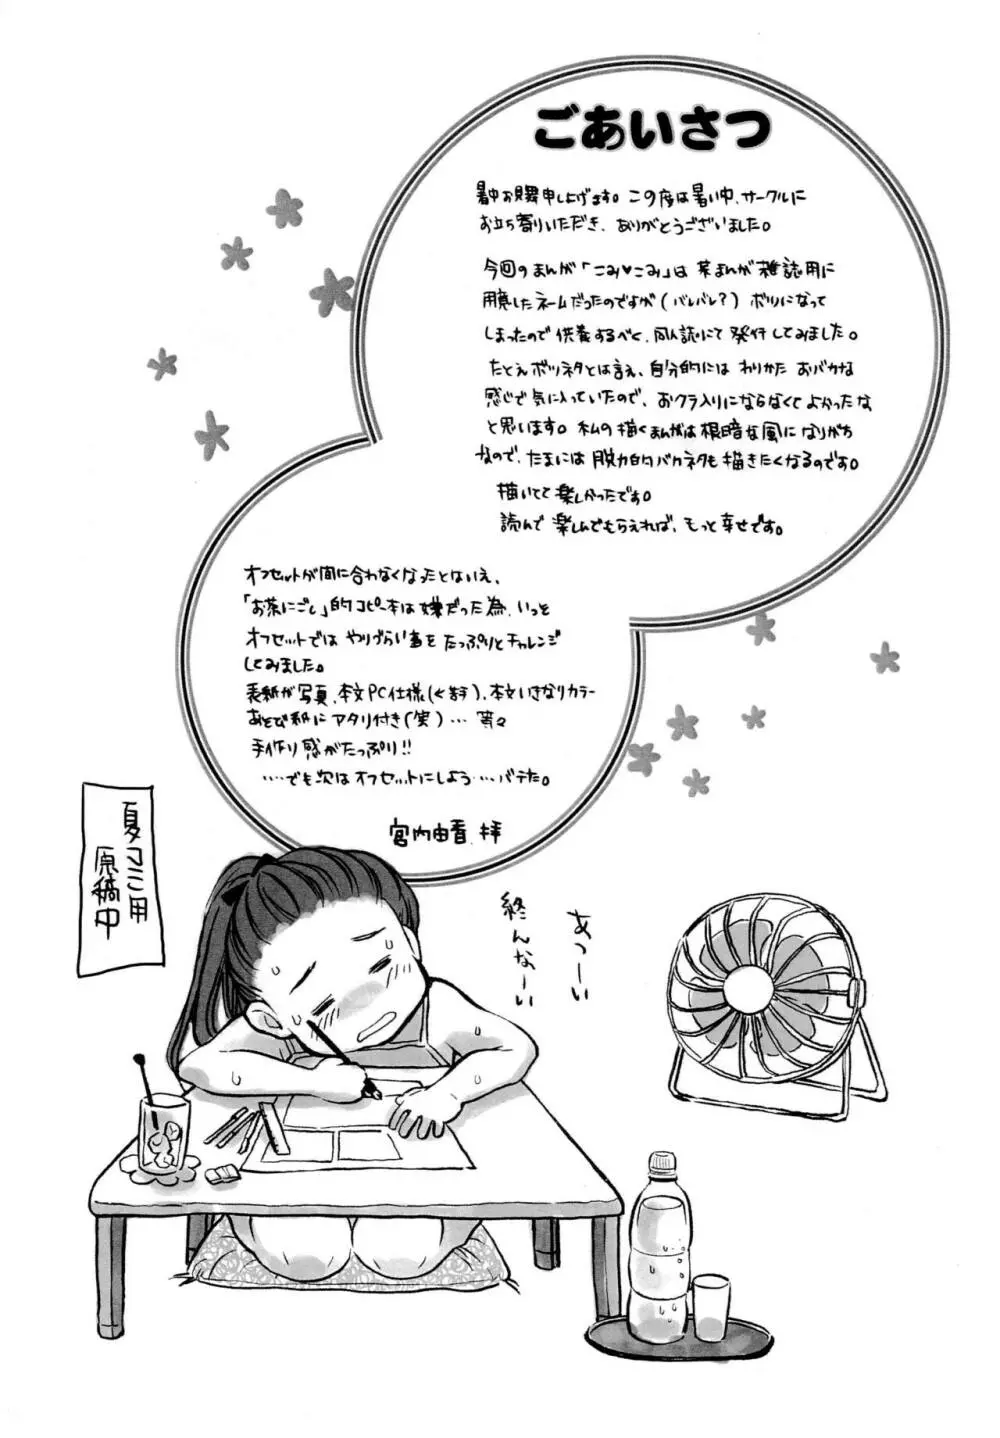 ごあいさつ
暑中お見舞申し上げます。この度は暑い中、サークルに
お立ち寄りいただき、ありがとうございました。
今回のまんが「こみ♥こみ」は 某まんが雑誌用に
用意したネームだったのですが(バレバレ?) ボツになって
しまったので 供養するべく、同人誌にて 発行してみました。
たとえボツネタとは言え、自分的には わりかた おバカな
感じで気に入っていたので、おクラ入りにならなくてよかったな
と思います。私の描くまんがは根暗な風になりがち
なので、たまには 脱力的バカネタも描きたくなるのです。
描いてて楽しかったです。
読んで 楽しんでもらえれば、もっと幸せです。
オフセットが間に合わなくなったとはいえ、
「お茶にごし」的コピー本は嫌だった為、いっそ
オフセットでは やりづらい事を たっぷりとチャレンジ
してみました。
表紙が写真、本文PC仕様(く ます)、本文いきなりカラー
あそび紙に アタリ付き(笑)… 等々
手作り感がたっぷり!!
…でも次はオフセットにしよう…バテた。
宮内由香 拝
夏コミ用
原稿中
あつーい
終んなーい